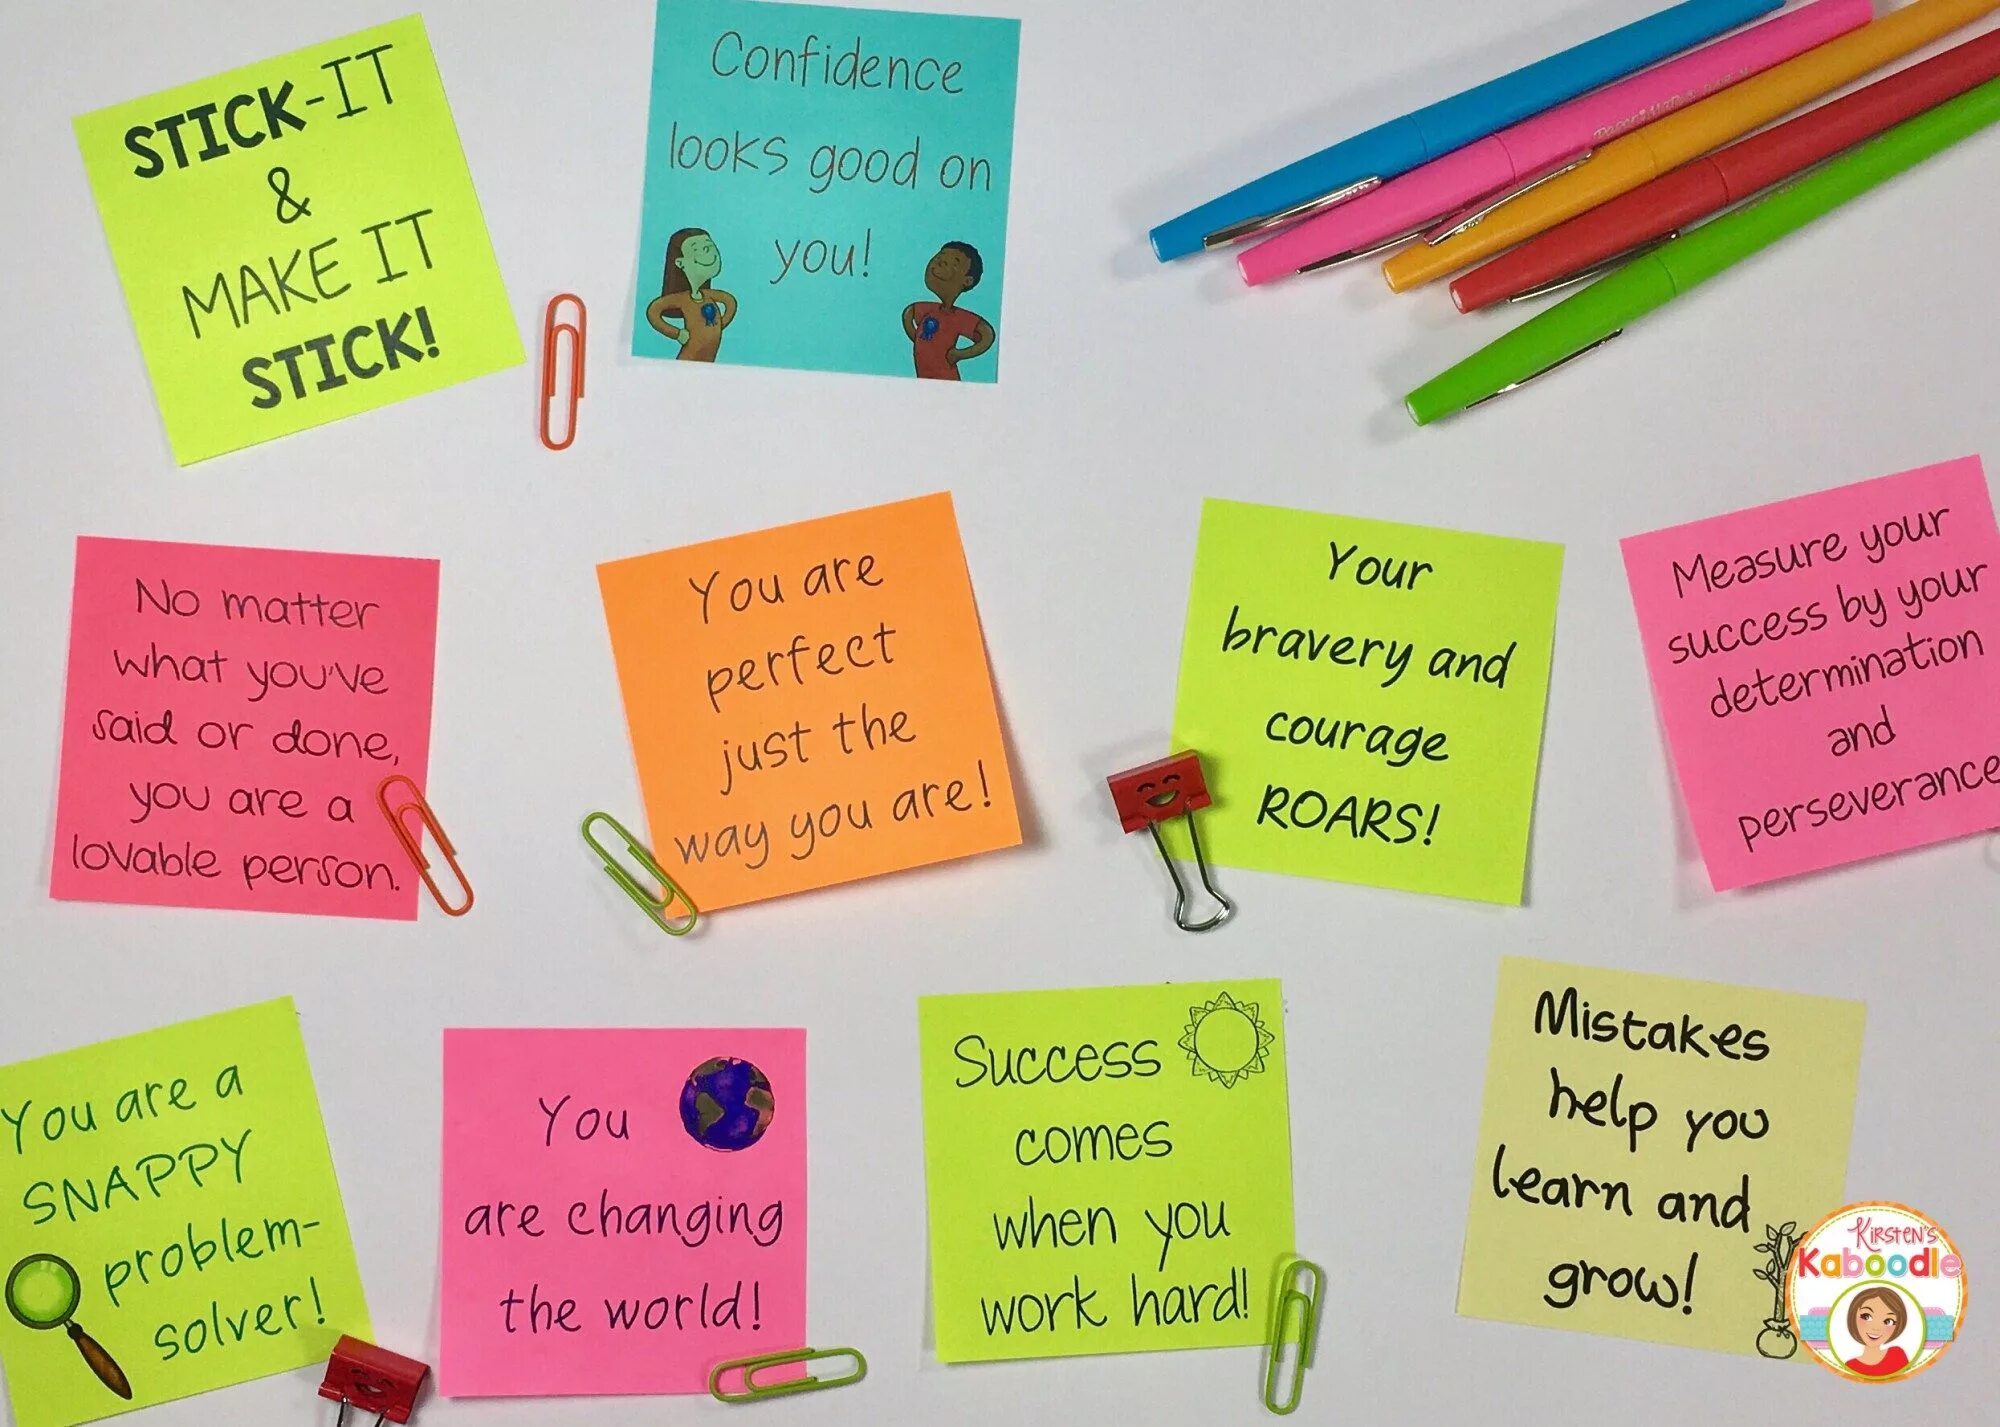 STICK-IT
&
MAKE IT
STICK!
Confidence
looks good on
you!
No matter
what you've
said or done,
you are a
lovable person.
You are
perfect
just the
way you are!
Your
bravery and
courage
ROARS!
Measure your
success by your
determination
and
perseverance
You are a
SNAPPY
problem-
solver!
You
are changing
the world!
Success
comes
when you
work hard!
Mistakes
help you
learn and
grow!
KIRSTEN'S
Kaboodle